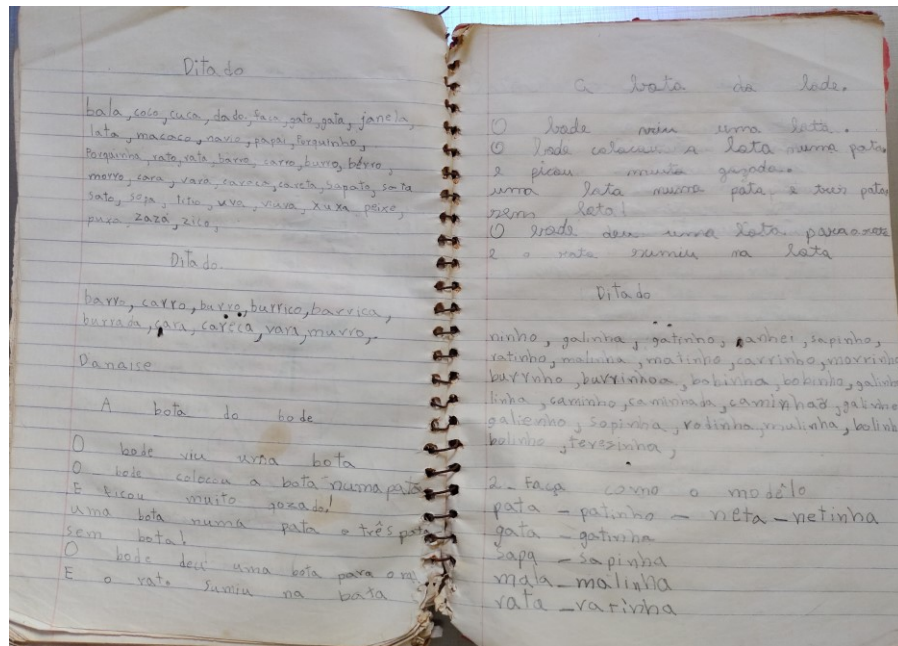 Ditado
bala, coco, cuca, dado, faca, gato, gata, janela,
lata, macaco, navio, papai, Porquinho,
Porquinha, rato, rata, barro, carro, burro, bérro,
morro, cara, vara, careca, careta, sapato, sata
sato, sopa, uva, viuva, xuxa peixe,
puxa, zazá, zico,
Ditado.
barro, carro, burro, burrico, barrica,
burrada, cara, careca, vara, murro,.
Danaise
A bota do bode
O bode viu uma bota
O bode colocou a bota numa pata
E ficou muito gozado!
uma bota numa pata e três pata
sem bota!
O bode deu uma bota para o
E o rato sumiu na bata
A bota do bode.
O bode viu uma bota.
O bode colocou a bota numa pata
e picou muito gozado.
uma bota numa pata e três patas
sem bota!
O bode deu uma bota para o rato
e o rato sumiu na bota
Ditado
ninho, galinha, gatinho, ganhei, sapinho,
ratinho, malinha, matinho, carrinho, morrinho
burrnho, burrinhoa, bobinha, bobinho, galinh
linha, caminho, caminhada, caminhaõ, galinho
galienho, sopinha, rodinha, mulinha, bolinh
bolinho, teresinha,
2 - Faça como o modêlo
pata - patinho - neta - netinha
gata - gatinha
sapa - sapinha
mala - mailinha
rata - ratinha